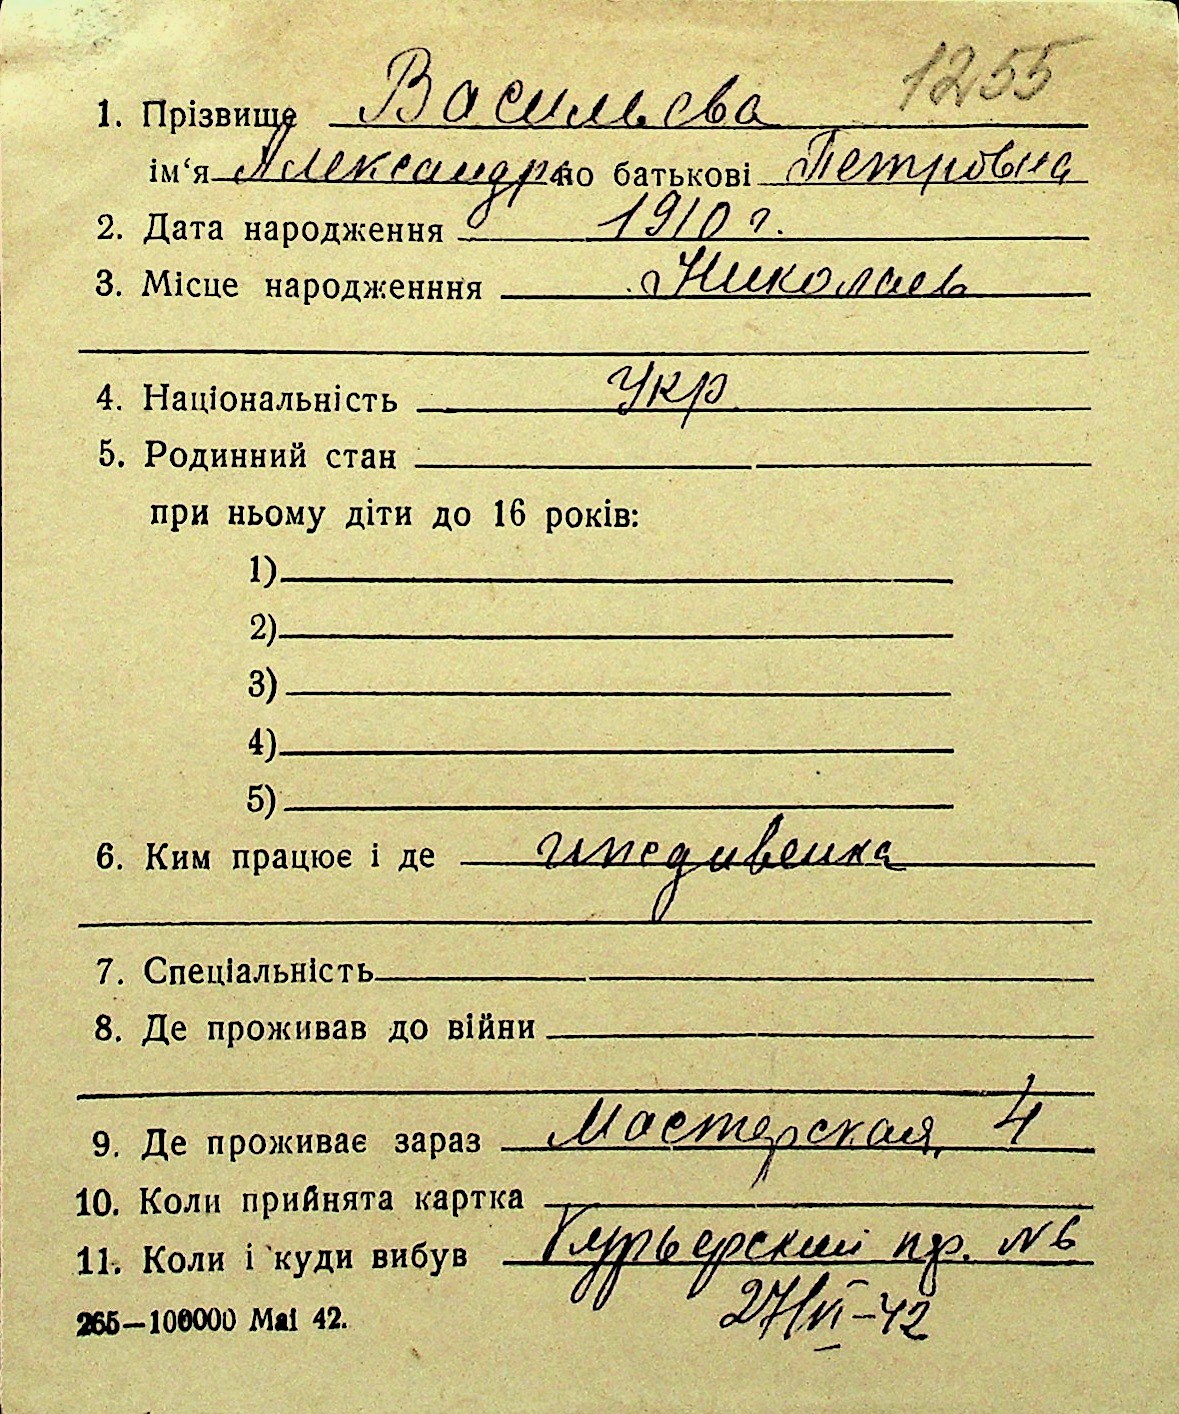 1255
1. Прізвище Васильева
ім‘я Александра по батькові Петровна
2. Дата народження 1910 г.
3. Місце народженння Николаев
4. Національність Укр
5. Родинний стан
при ньому діти до 16 років:
1)
2)
3)
4)
5)
6. Ким працює і де иждивенка
7. Спеціальність
8. Де проживав до війни
9. Де проживає зараз Мастерская, 4
10. Коли прийнята картка
11. Коли і куди вибув Курьерский пр. № 6
265—100000 Mai 42. 27/VI-42